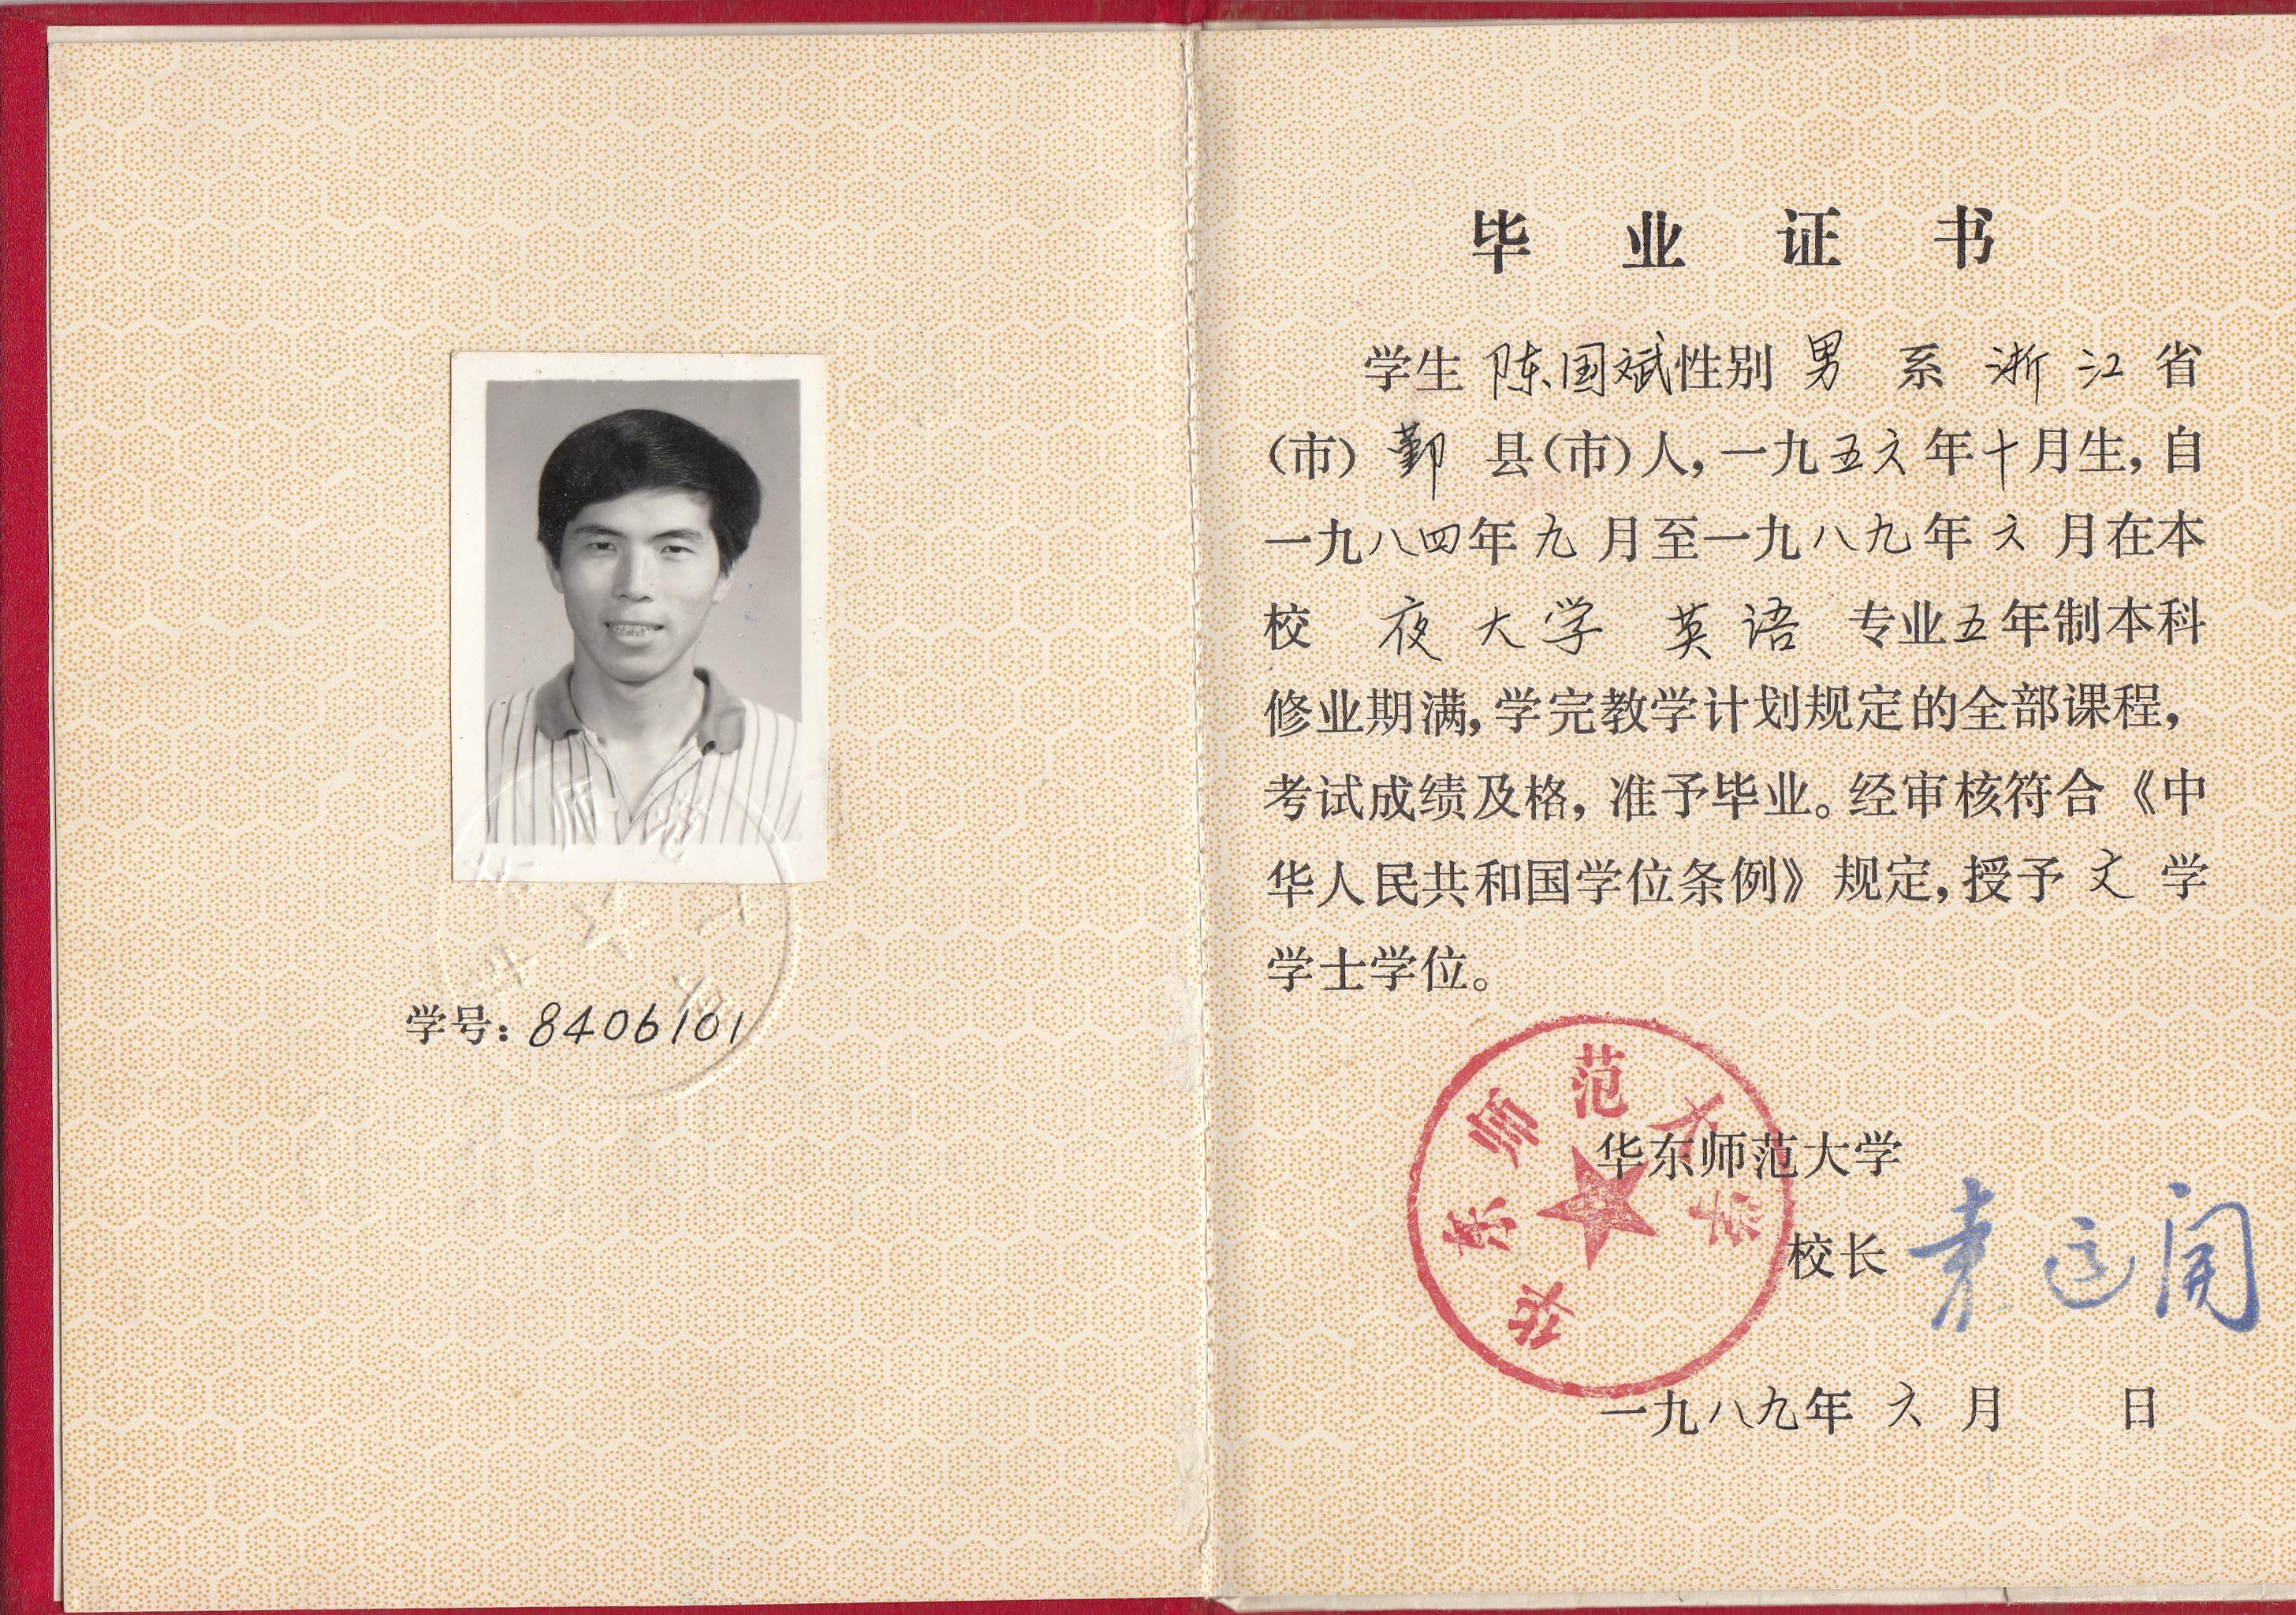 学号：8406101
毕业证书
学生 陈国斌 性别 男 系 浙江 省
（市）鄞 县（市）人，一九五六年十月生，自
一九八四年九月至一九八九年六月在本
校 夜大学 英语 专业五年制本科
修业期满，学完教学计划规定的全部课程，
考试成绩及格，准予毕业。经审核符合《中
华人民共和国学位条例》规定，授予 文 学
学士学位。
华东师范大学
华东师范大学
校长 袁运开
一九八九年 六 月 日